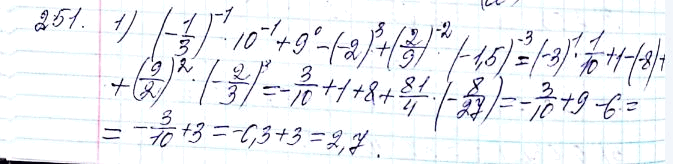 251. 1) (-1/3)^-1 · 10^-1 + 9^0 - (-2)^3 + (2/9)^-2 · (-1,5)^-3 = (-3)^1 · 1/10 + 1 - (-8) +
+ (9/2)^2 · (-2/3)^3 = -3/10 + 1 + 8 + 81/4 · (-8/27) = -3/10 + 9 - 6 =
= -3/10 + 3 = -0,3 + 3 = 2,7.